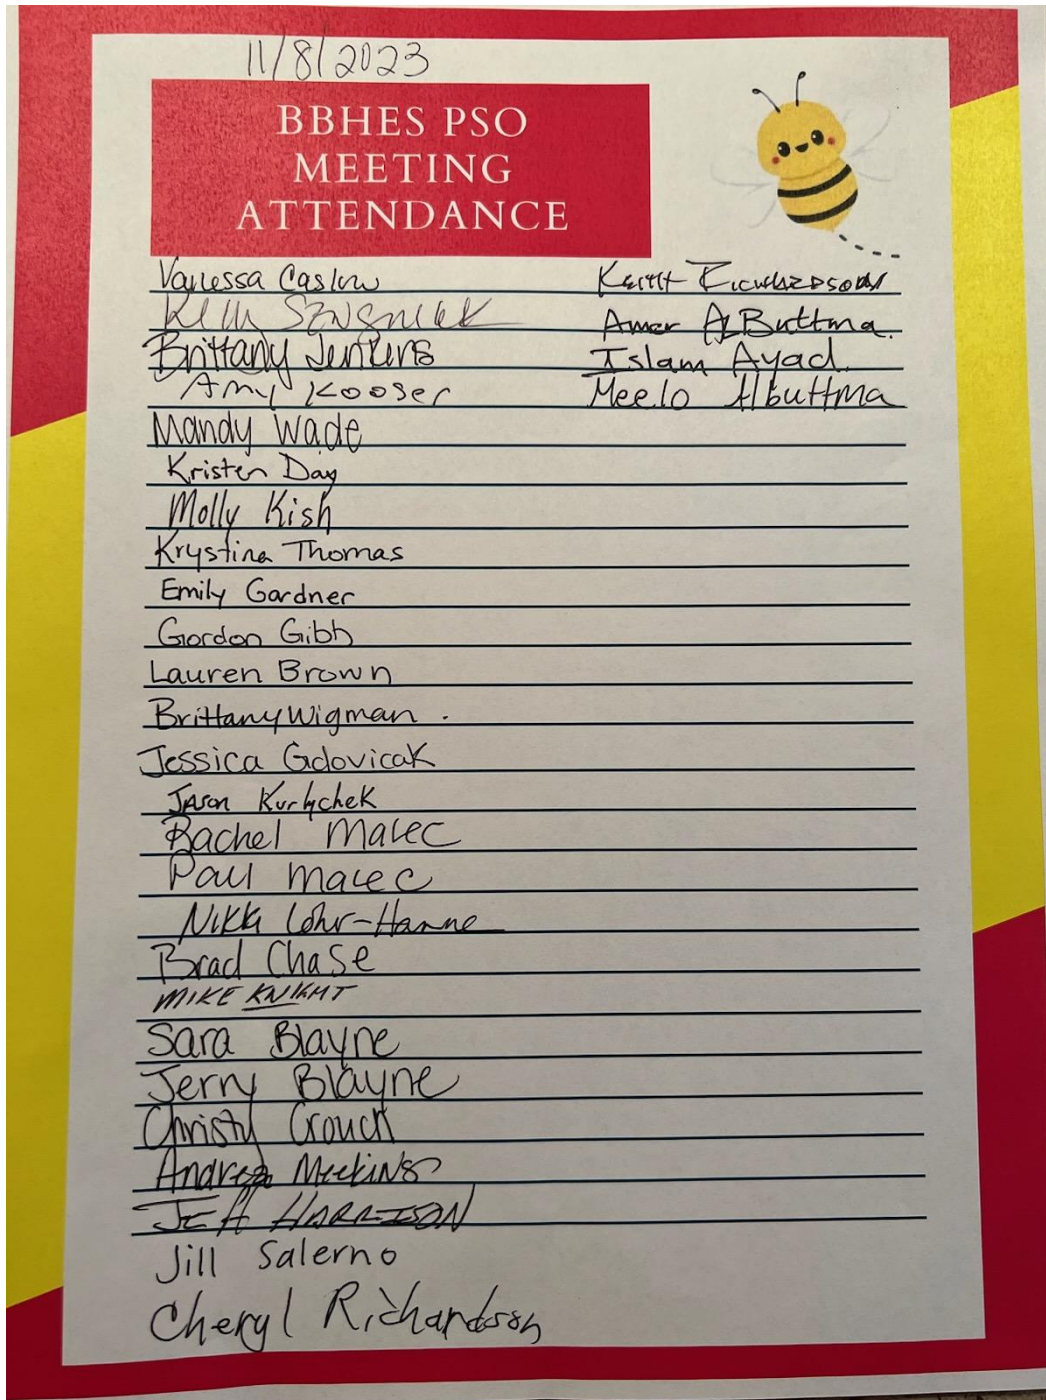 11/8/2023
BBHES PSO
MEETING
ATTENDANCE
Vanessa Caslow
Kelly
Brittany Jenkins
Amy Kooser
Mandy Wade
Kristen Day
Molly Kish
Krystina Thomas
Emily Gardner
Gordon Gibb
Lauren Brown
Brittany Wigman .
Jessica Gdovicak
Jason Kurlychek
Rachel Malec
Paul Malec
Nikki Lohr-Hanne
Brad Chase
MIKE KNIGHT
Sara Blayne
Jerry Blayne
Christy Crouch
Andrea Meekins
JEff HARRISON
Jill Salerno
Cheryl Richardson
Keith Richardson
Amer AlButtma.
Islam Ayad
Meelo Albuttma